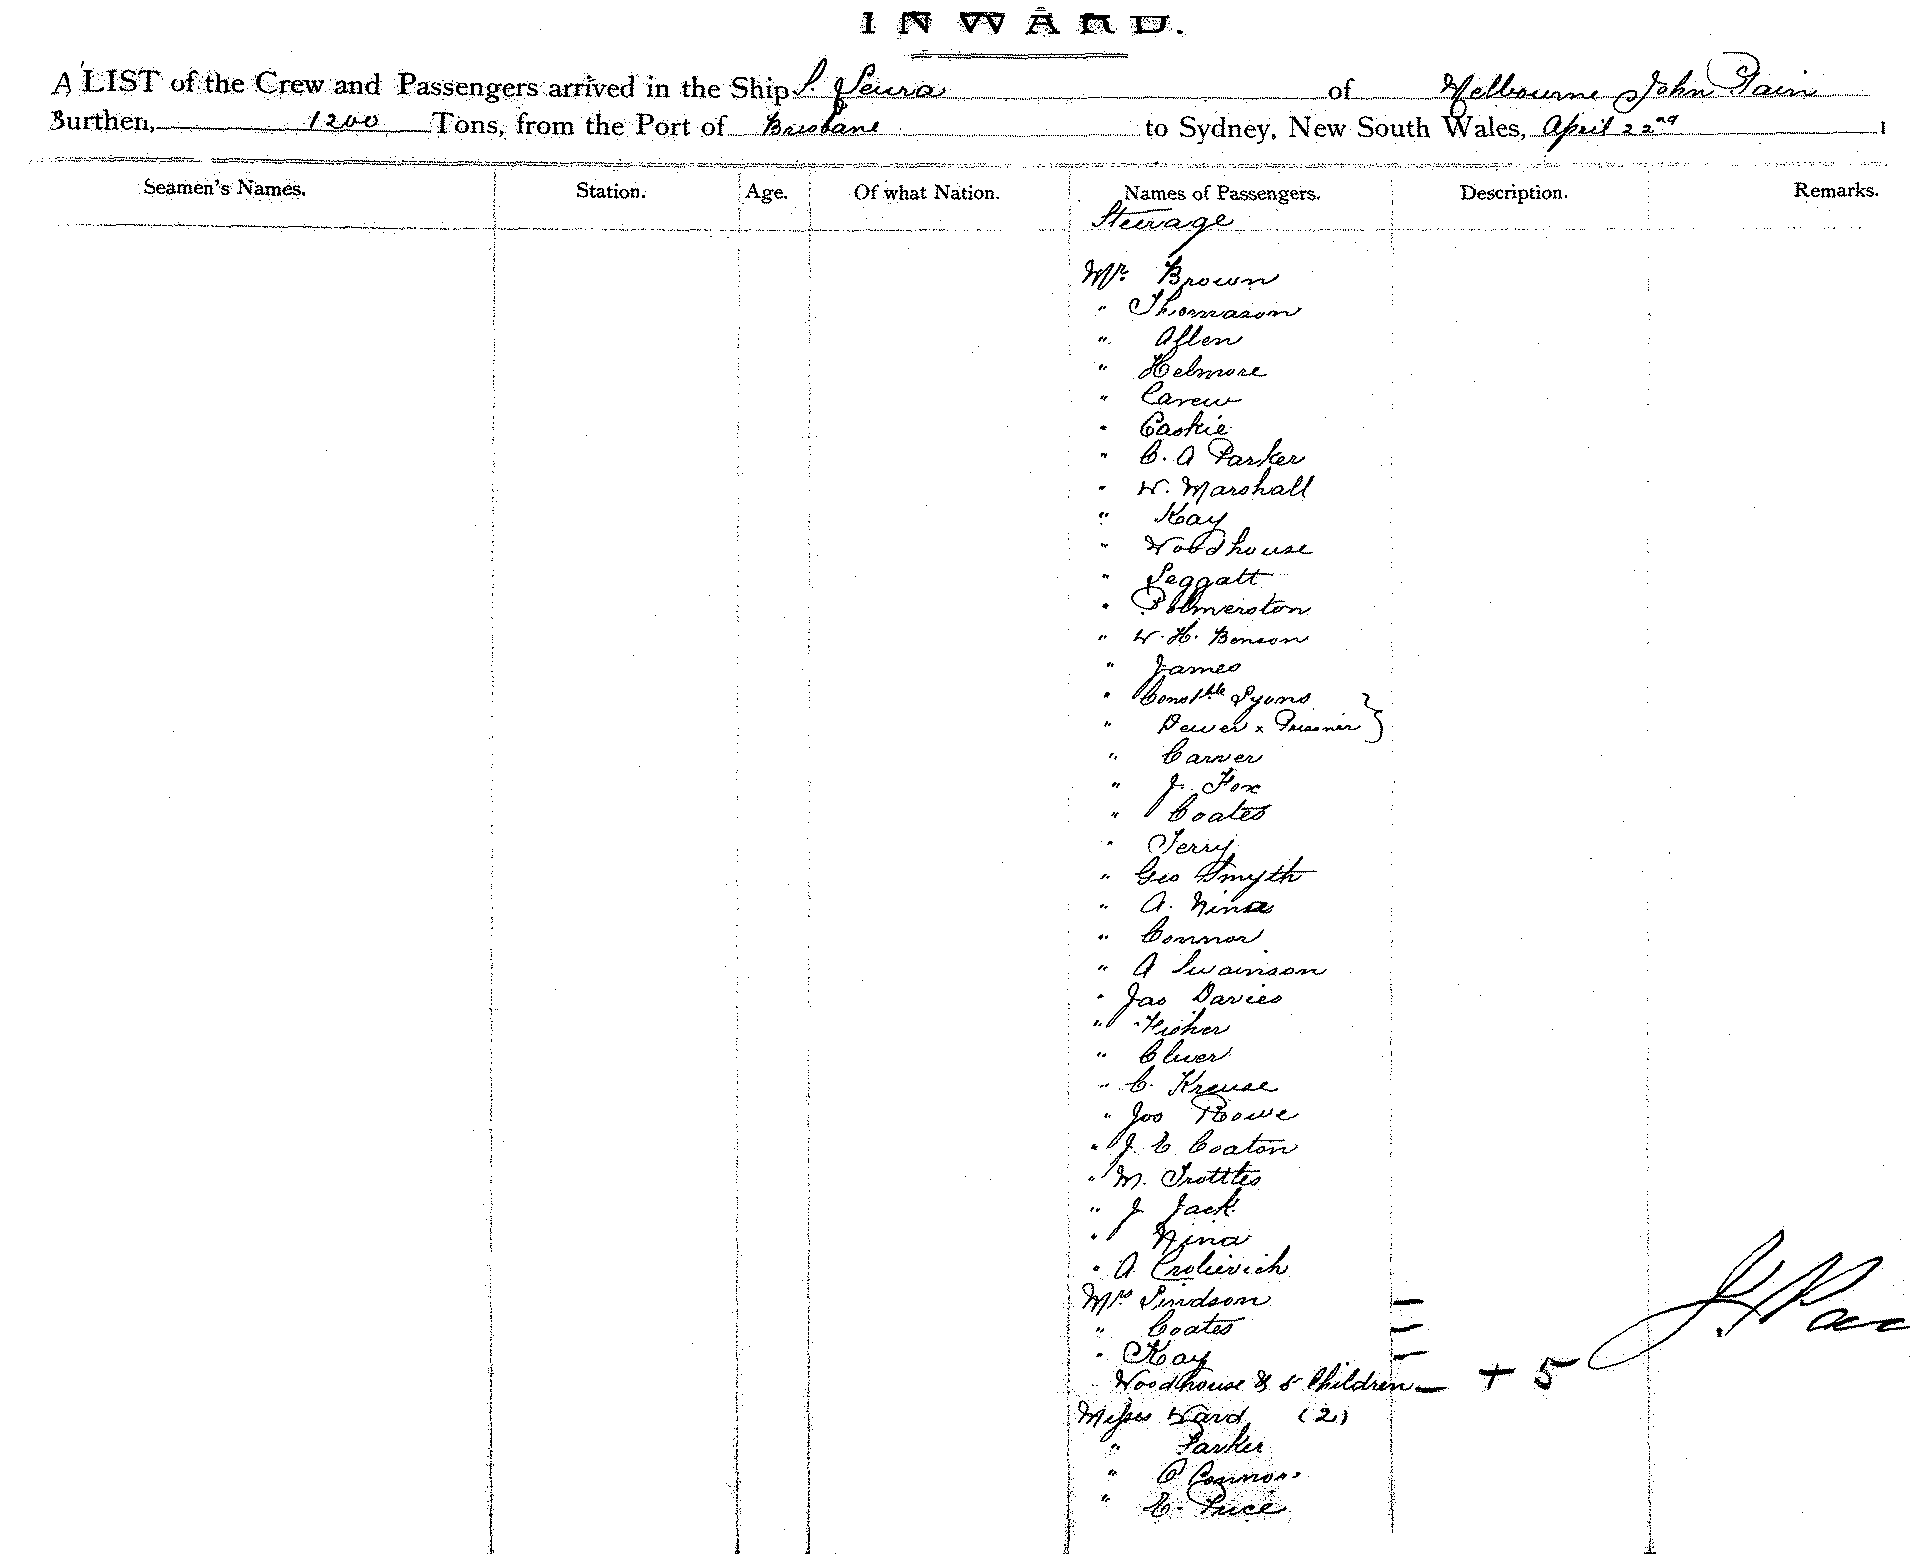 INWARD.
A LIST of the Crew and Passengers arrived in the Ship S. Seura of Melbourne John Pain
Burthen, 1200 Tons, from the Port of Brisbane to Sydney, New South Wales, April 22nd 1
Seamen's Names. Station. Age. Of what Nation. Names of Passengers. Description. Remarks.
Steerage
Mr. Brown
" Thomason
" Allen
" Helmore
" Carew
" Caskie
" C. A Parker
" W. Marshall
" Kay
" Woodhouse
" Leggatt
" Palmerston
" W. H. Benson
" James
" Constble Lyons
" Dewer & Prisoner }
" Carver
" J. Fox
" Coates
" Terry
" Geo Smyth
" A. Nina
" Connor
" A Swainson
" Jas Davies
" Fisher
" Cluer
" C. Kreuse
" Jos Rowe
" J. E Coaton
" M. Trottles
" J. Jack
" Nina
" A
Mrs Lindson —
" Coates —
" Kay —
Woodhouse & 5 Children — + 5
Misses Ward (2)
" Parker
" O Connor
" E. Price